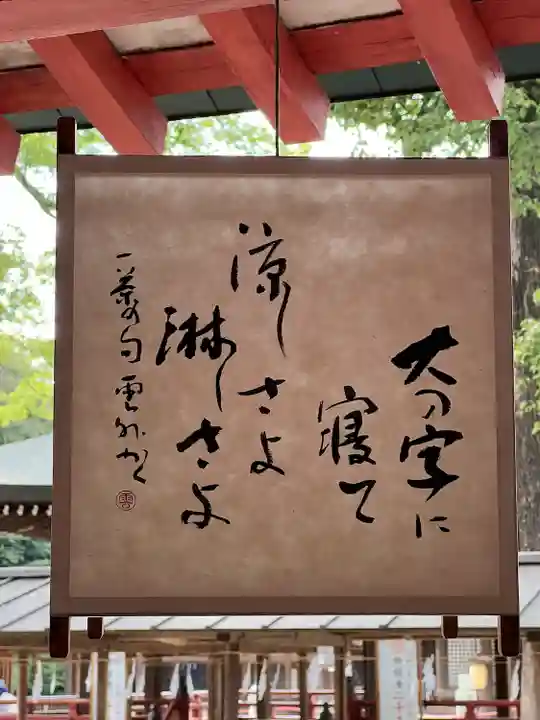 大の字に
寝て
涼しさよ
淋しさよ
一茶の句 雲外かく
雲